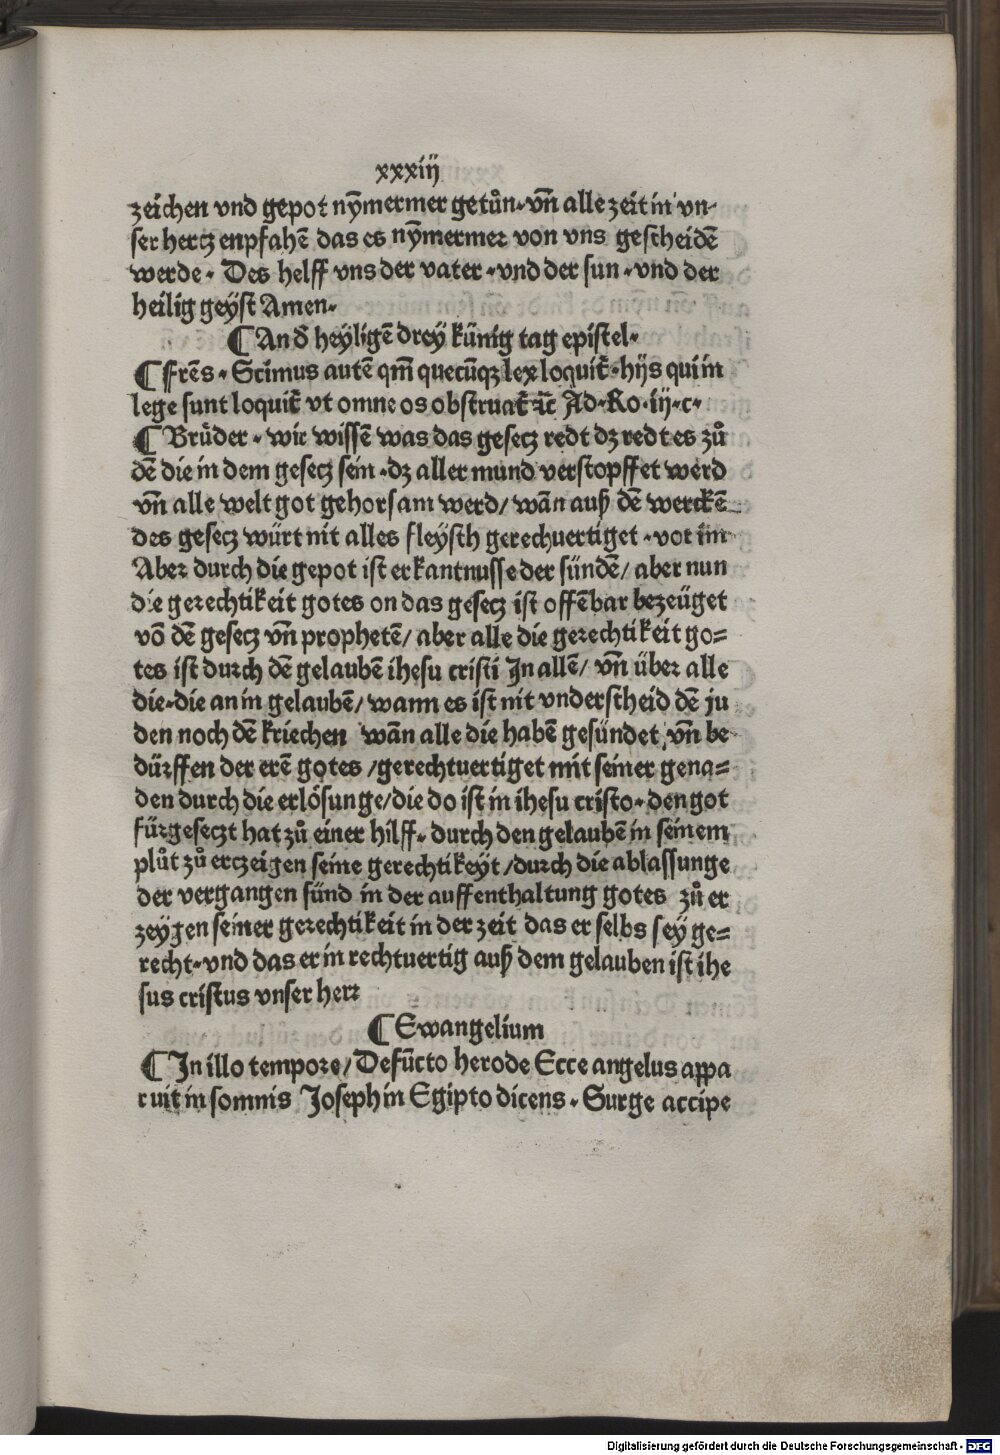 xxxiij
zeichen vnd gepot nȳmermer getůn·vn̄ alle zeit in vn·
ser hertz enpfahē das es nȳmermer von vns gescheidē
werde· Des helff vns der vater·vnd der sun·vnd der
heilig geyst Amen·
¶ An đ heyligē drey künig tag epistel·
¶ Frēs·Scimus autē qm̄ quecūqꝫ lex loquit̄·hijs qui in
lege sunt loquit̄ vt omne os obstruat̄ ⁊c̄ Ad·Ro·iij·c·
¶ Brůder·wir wissē was das gesetz redt dz redt es zů
dē die in dem gesetz sein·dz aller mund verstopffet werd
vn̄ alle welt got gehorsam werd/ wān auß dē werckē
des gesetz würt nit alles fleysch gerechuertiget·vor im
Aber durch die gepot ist erkantnusse der sündē/ aber nun
die gerechtikeit gotes on das gesetz ist offēbar bezeüget
vō dē gesetz vn̄ prophetē/ aber alle die gerechtikeit go=
tes ist durch dē gelaubē ihesu cristi In allē/ vn̄ über alle
die·die an in gelaubē/ wann es ist nit vnderscheid dē ju
den noch dē kriechen wān alle die habē gesündet vn̄ be
dürffen der erē gotes /gerechtuertiget mit seiner gena=
den durch die erlösunge/die do ist in ihesu cristo·den got
fürgesetzt hat zů einer hilff·durch den gelaubē in seinem
plůt zů erczeigen seine gerechtikeyt/durch die ablassunge
der vergangen sünd in der auffenthaltung gotes zů er
zeygen seiner gerechtikeit in der zeit das er selbs sey ge=
recht·vnd das er in rechtuertig auß dem gelauben ist ihe
sus cristus vnser herr
¶ Ewangelium
¶ In illo tempore/Defūcto herode Ecce angelus appa
ruit in somnis Joseph in Egipto dicens·Surge accipe
Digitalisierung gefördert durch die Deutsche Forschungsgemeinschaft - DFG